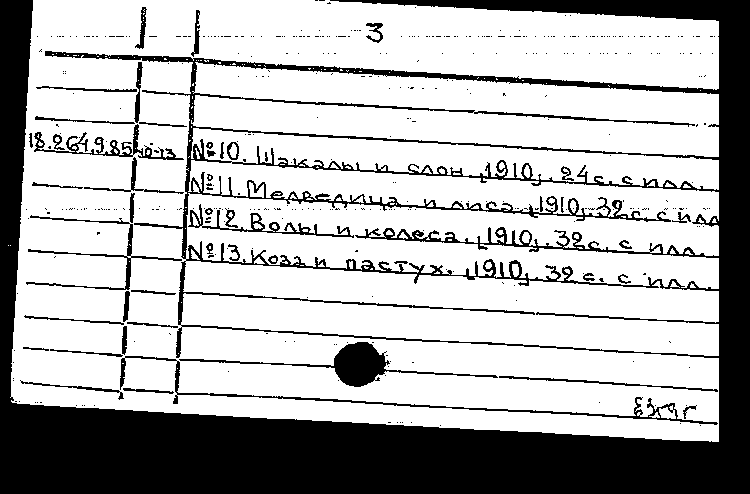 3
18.264.9.85 10-13 №10. Шакалы и слон. [1910]. 24 с. с илл.
№11. Медведица и лиса. [1910]. 32 с. с илл
№12. Волы и колеса. [1910]. 32 с. с илл.
№13. Коза и пастух. [1910]. 32 с. с илл.